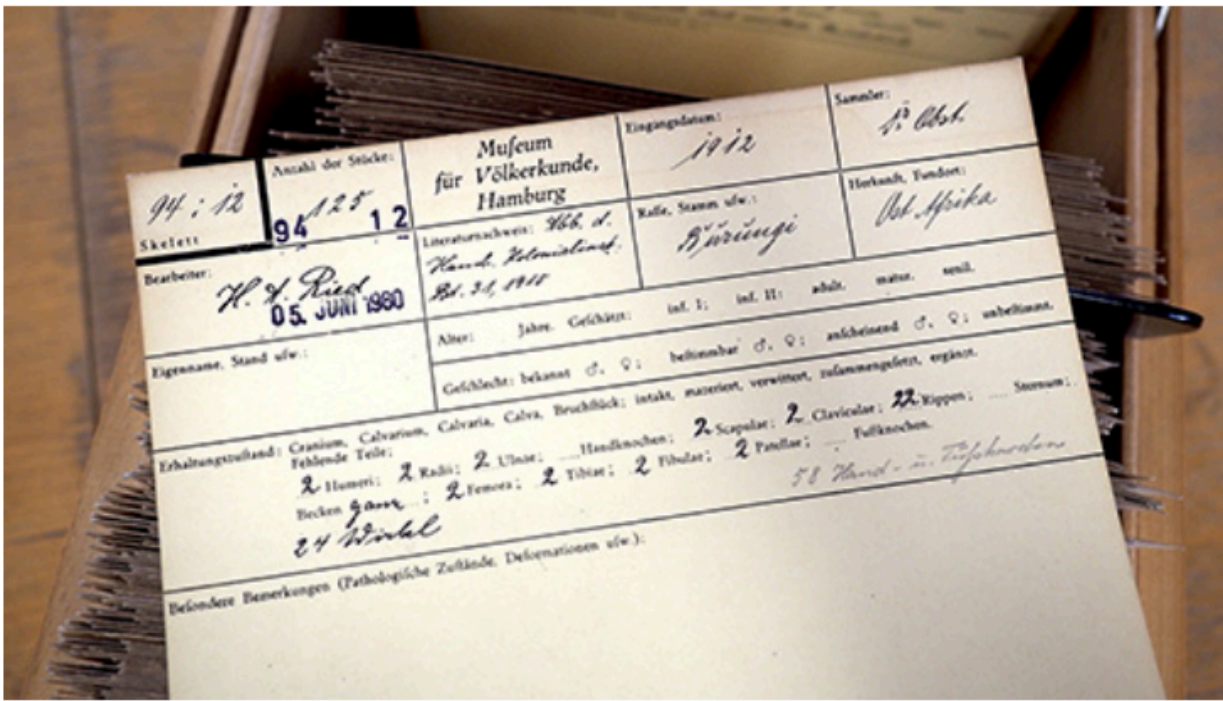 94 : 12
Skelett
Anzahl der Stücke:
125
94 12
Muſeum
für Völkerkunde,
Hamburg
Eingangsdatum:
1912
Sammler:
Obst.
Bearbeiter:
H. Ried
05. JUNI 1980
Literaturnachweis: Abb. d.
Hamb. Kolonialinst.
Bd. 31, 1915
Raſſe, Stamm uſw.:
Burungi
Herkunft, Fundort:
Ost Afrika
Alter: Jahre. Geſchätzt: inf. I; inf. II: adult. matur. senil.
Eigenname, Stand uſw.:
Geſchlecht: bekannt ♂, ♀; beſtimmbar ♂, ♀; anſcheinend ♂, ♀; unbeſtimmt.
Erhaltungszuſtand: Cranium, Calvarium, Calvaria, Calva, Bruchſtück; intakt, mazeriert, verwittert, zuſammengeſetzt, ergänzt.
Fehlende Teile;
2 Humeri; 2 Radii; 2 Ulnae; .... Handknochen; 2 Scapulae; 2 Claviculae; 22 Rippen; .... Sternum;
Becken ganz; 2 Femora; 2 Tibiae; 2 Fibulae; 2 Patellae; .... Fußknochen.
24 Wirbel
58 Hand- u. Fußknochen
Beſondere Bemerkungen (Pathologiſche Zuſtände, Deformationen uſw.):